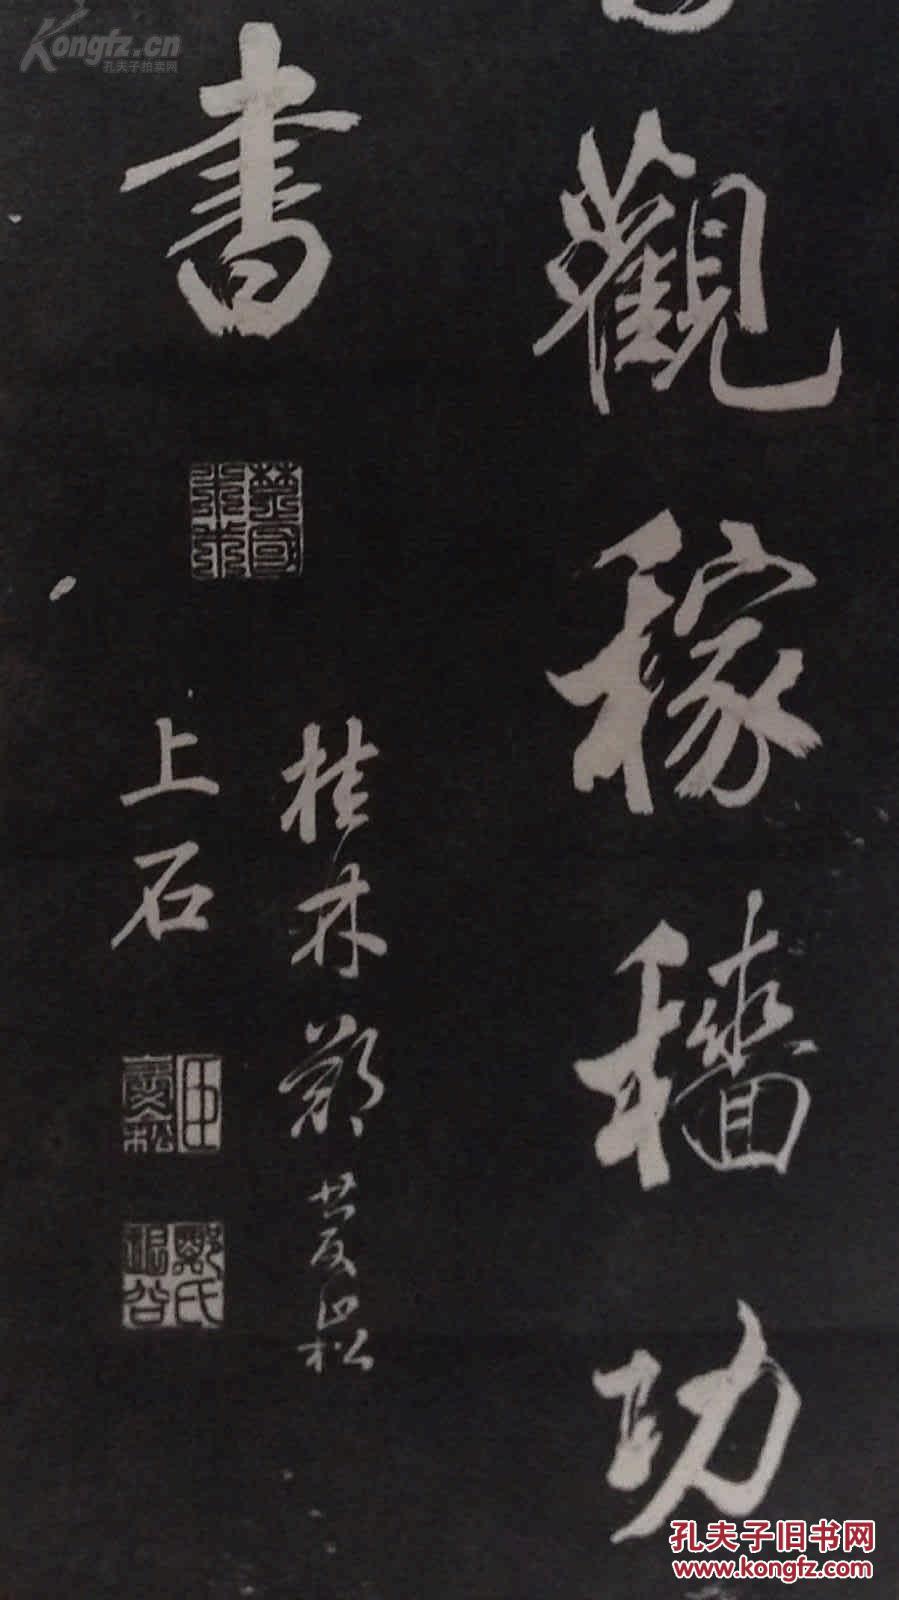 觀稼穡功
書
楚國米芾
桂林鄭
上石
鄭氏
Kongfz.cn
孔夫子拍卖网
孔夫子旧书网
www.kongfz.com